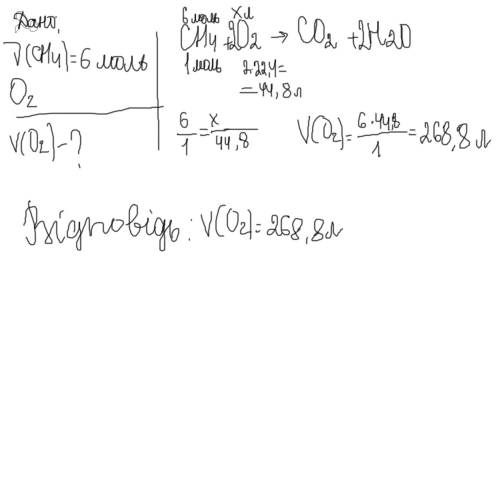 Дано:
ν(CH4)=6 моль
O2
V(O2)-?
6 моль x л
CH4+2O2 → CO2 +2H2O
1 моль 2·22,4=
=44,8 л
6/1 = x/44,8
V(O2)= 6·44,8/1 = 268,8 л
Відповідь: V(O2)=268,8 л